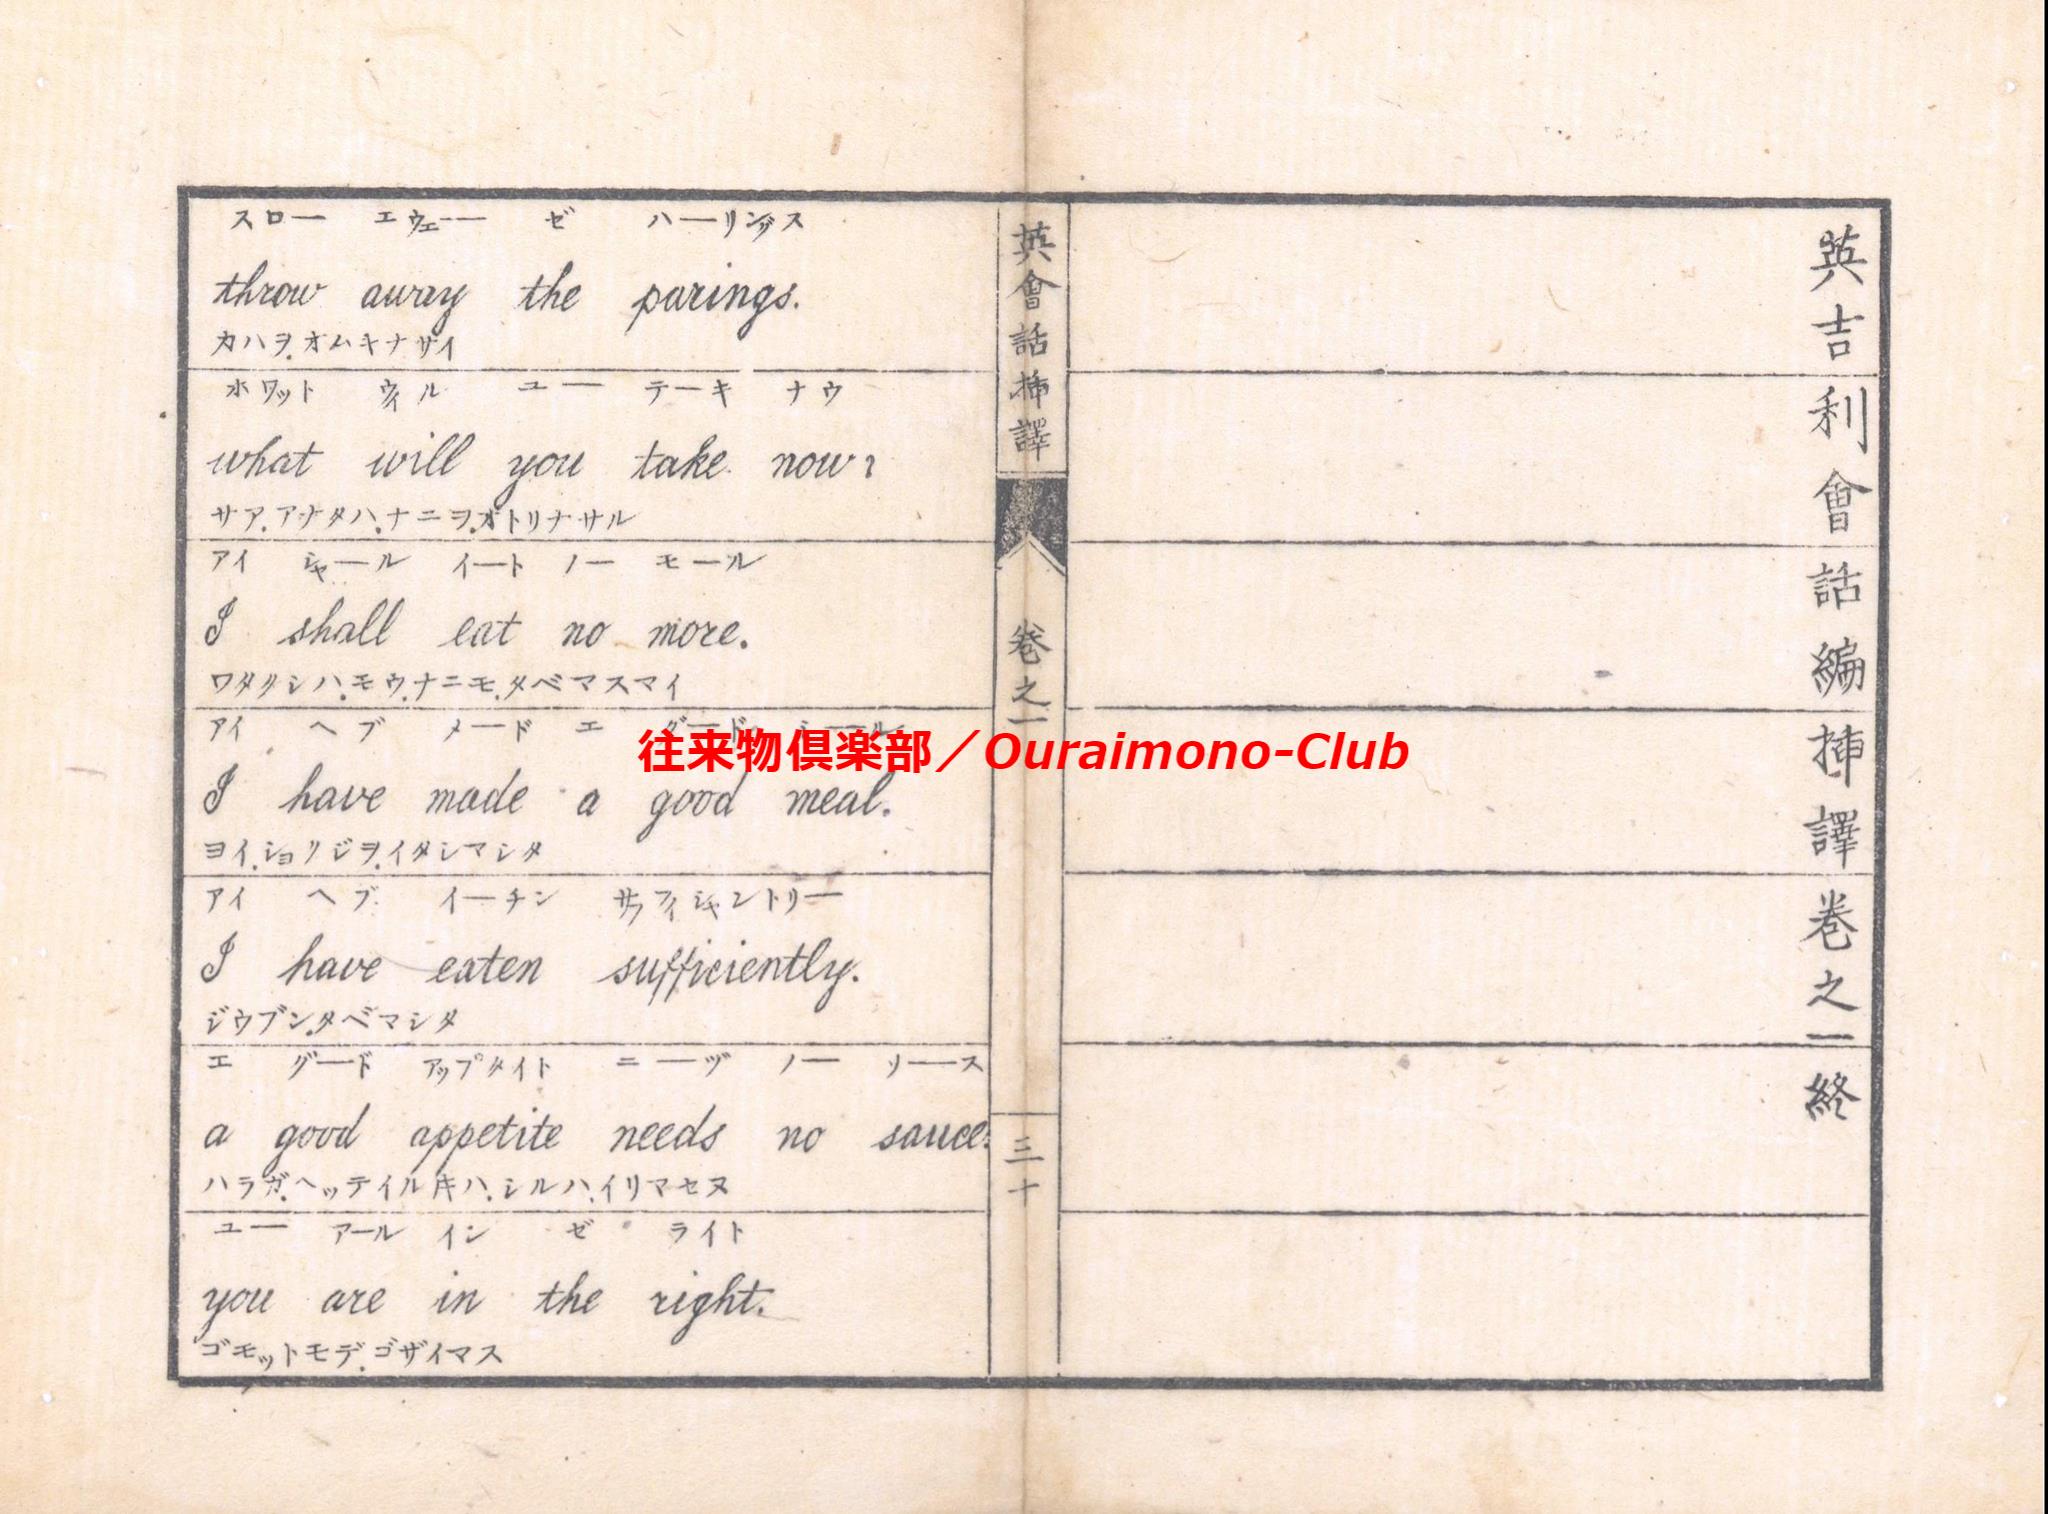 スロー エウェー ゼ ハーリングス
throw away the parings.
カハヲ.オムキナサイ
ホワット ウィル ユー テーキ ナウ
what will you take now?
サア.アナタハ.ナニヲ.オトリナサル
アイ シャール イート ノー モール
I shall eat no more.
ワタクシハ.モウ.ナニモ.タベマスマイ
アイ ヘブ メード エ グード ミール
I have made a good meal.
ヨイ.ショクジヲ.イタシマシタ
アイ ヘブ イーチン サッフィシャントリー
I have eaten sufficiently.
ジウブン.タベマシタ
エ グード アップタイト ニーヅ ノー ソース
a good appetite needs no sauce.
ハラガ.ヘッテイルトキハ.シルハ.イリマセヌ
ユー アール イン ゼ ライト
you are in the right.
ゴモットモデ.ゴザイマス
英會話挿譯
卷之一
三十
英吉利會話編挿譯卷之一終
往来物倶楽部／Ouraimono-Club